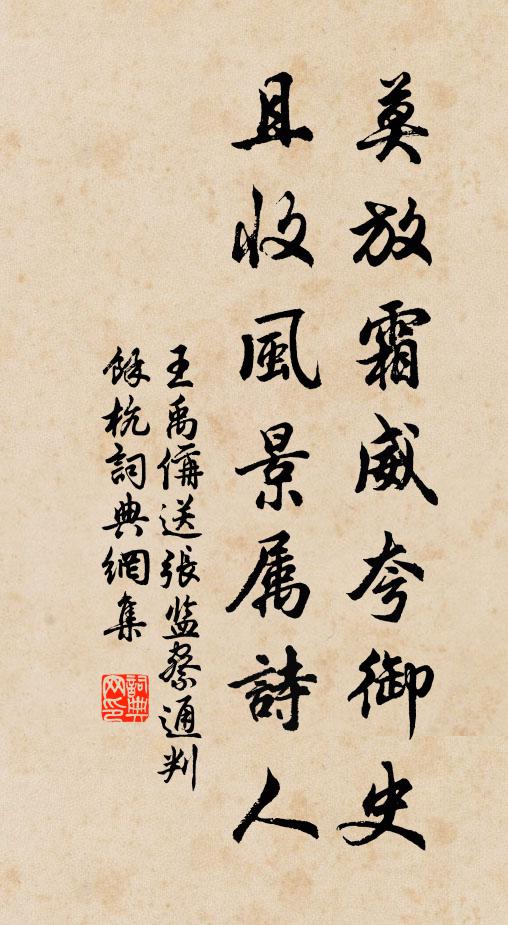 莫放霜威夸御史
且收風景属詩人
王禹偁送張监察通判
餘杭詞典網集
詞典网印